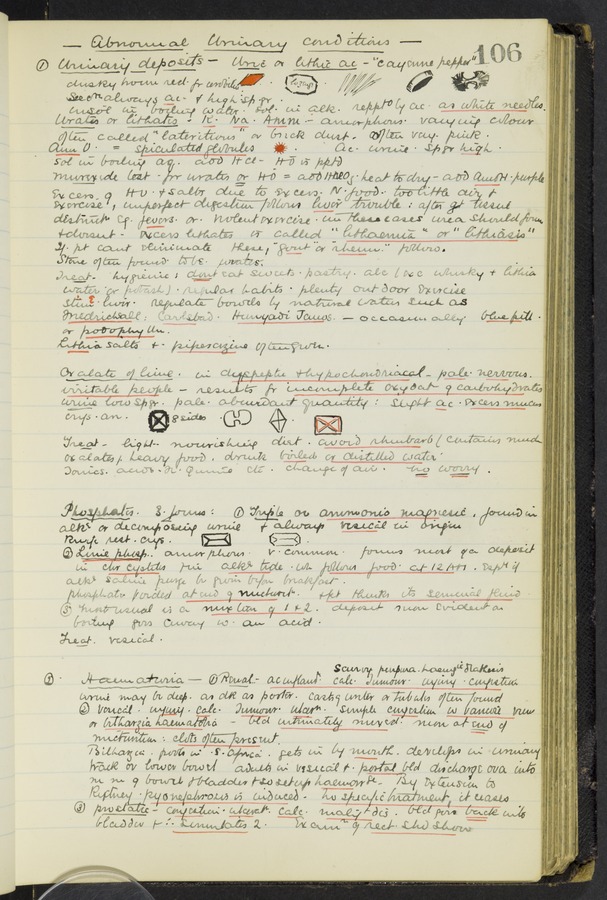 — Abnormal Urinary conditions —
106
① Urinary deposits — Uric or lithic ac - "cayenne pepper"
dusky brown red
always ac. + high sp gr
insol in boiling water. sol. in alk. reppt by ac. as white needles.
Urates or lithates : K. Na. Amm - amorphous varying colour
often called "lateritious" or brick dust. Often very pink.
Am U. = spiculated globules Ac. urine Sp gr high.
sol in boiling aq. add HCl -
murexide test for urates or add HNO3 heat to dry - add AmOH : purple
Excess of + salts due to excess N. food. too little air +
exercise, imperfect digestion follows liver trouble : after gt tissue
destruct eg. fevers. or violent exercise. in these cases urea should form
+ doesnt - Excess lithates is called "lithaemia" or "lithiasis"
If pt cant eliminate these, "gout" or "rheum." follows.
Stone often found to be urates.
Treat - hygienic : dont eat sweets. pastry. alc (exc whisky + lithia
water or potash). regular habits. plenty out door exercise
stim liver. regulate bowels by natural waters such as
Friedrichall. Carlsbad. Hunyadi Janos. — occasionally blue pill.
or podophyllin.
Lithia salts + piperazine often given.
Oxalate of lime. in dyspeptic + hypochondriacal - pale nervous.
irritable people - results fr incomplete oxydat of carbohydrates
urine low sp gr. pale. abundant quantity : slight ac. Excess mucus
crys. an. 8 sides
Treat - light nourishing diet. avoid rhubarb (contains much
oxalates + heavy food. drink boiled or distilled water
Tonics. acids. Quinine etc. change of air. no worry.
Phosphates. 3 forms : ① Triple or ammonio magnesic, found in
alk or decomposing urine + always vesical in origin
Large rect. crys.
② Lime phosp. amorphous v. common. forms most of a deposit
in chr cystitis alk tide follows food at 12 hrs.
alk saline purge be given before breakfast.
phosphate voided at end of micturit. + pt thinks its seminal fluid.
③ most usual is a mixture of 1 + 2. deposit more evident on
boiling goes away w. an acid.
Treat. vesical.
Scurvy purpura
② Haematuria — ① Renal - ac inflamt calc. Tumour. injury. congestion
urine may be deep. as dk as porter. casts of ureter or tubules often found
② vesical. injury. calc. Tumour. ulcer. simple congestion w varicose vein
or bilharzia haematobia - bld intimately mixed. more at end of
micturition : clots often present.
Bilharzia. parts in S. Africa. gets in by mouth. develops in urinary
track or lower bowel adults in vesical + portal bld discharge ova into
m m of bowel + bladder + so set up haemorr. By extension to
kidney. pyonephrosis is induced. no specific treatment, it ceases
③ prostatic - congestion. ulcerat. calc. malig dis. bld goes back into
bladder + ∴ simulates 2. Exam of rect shd show